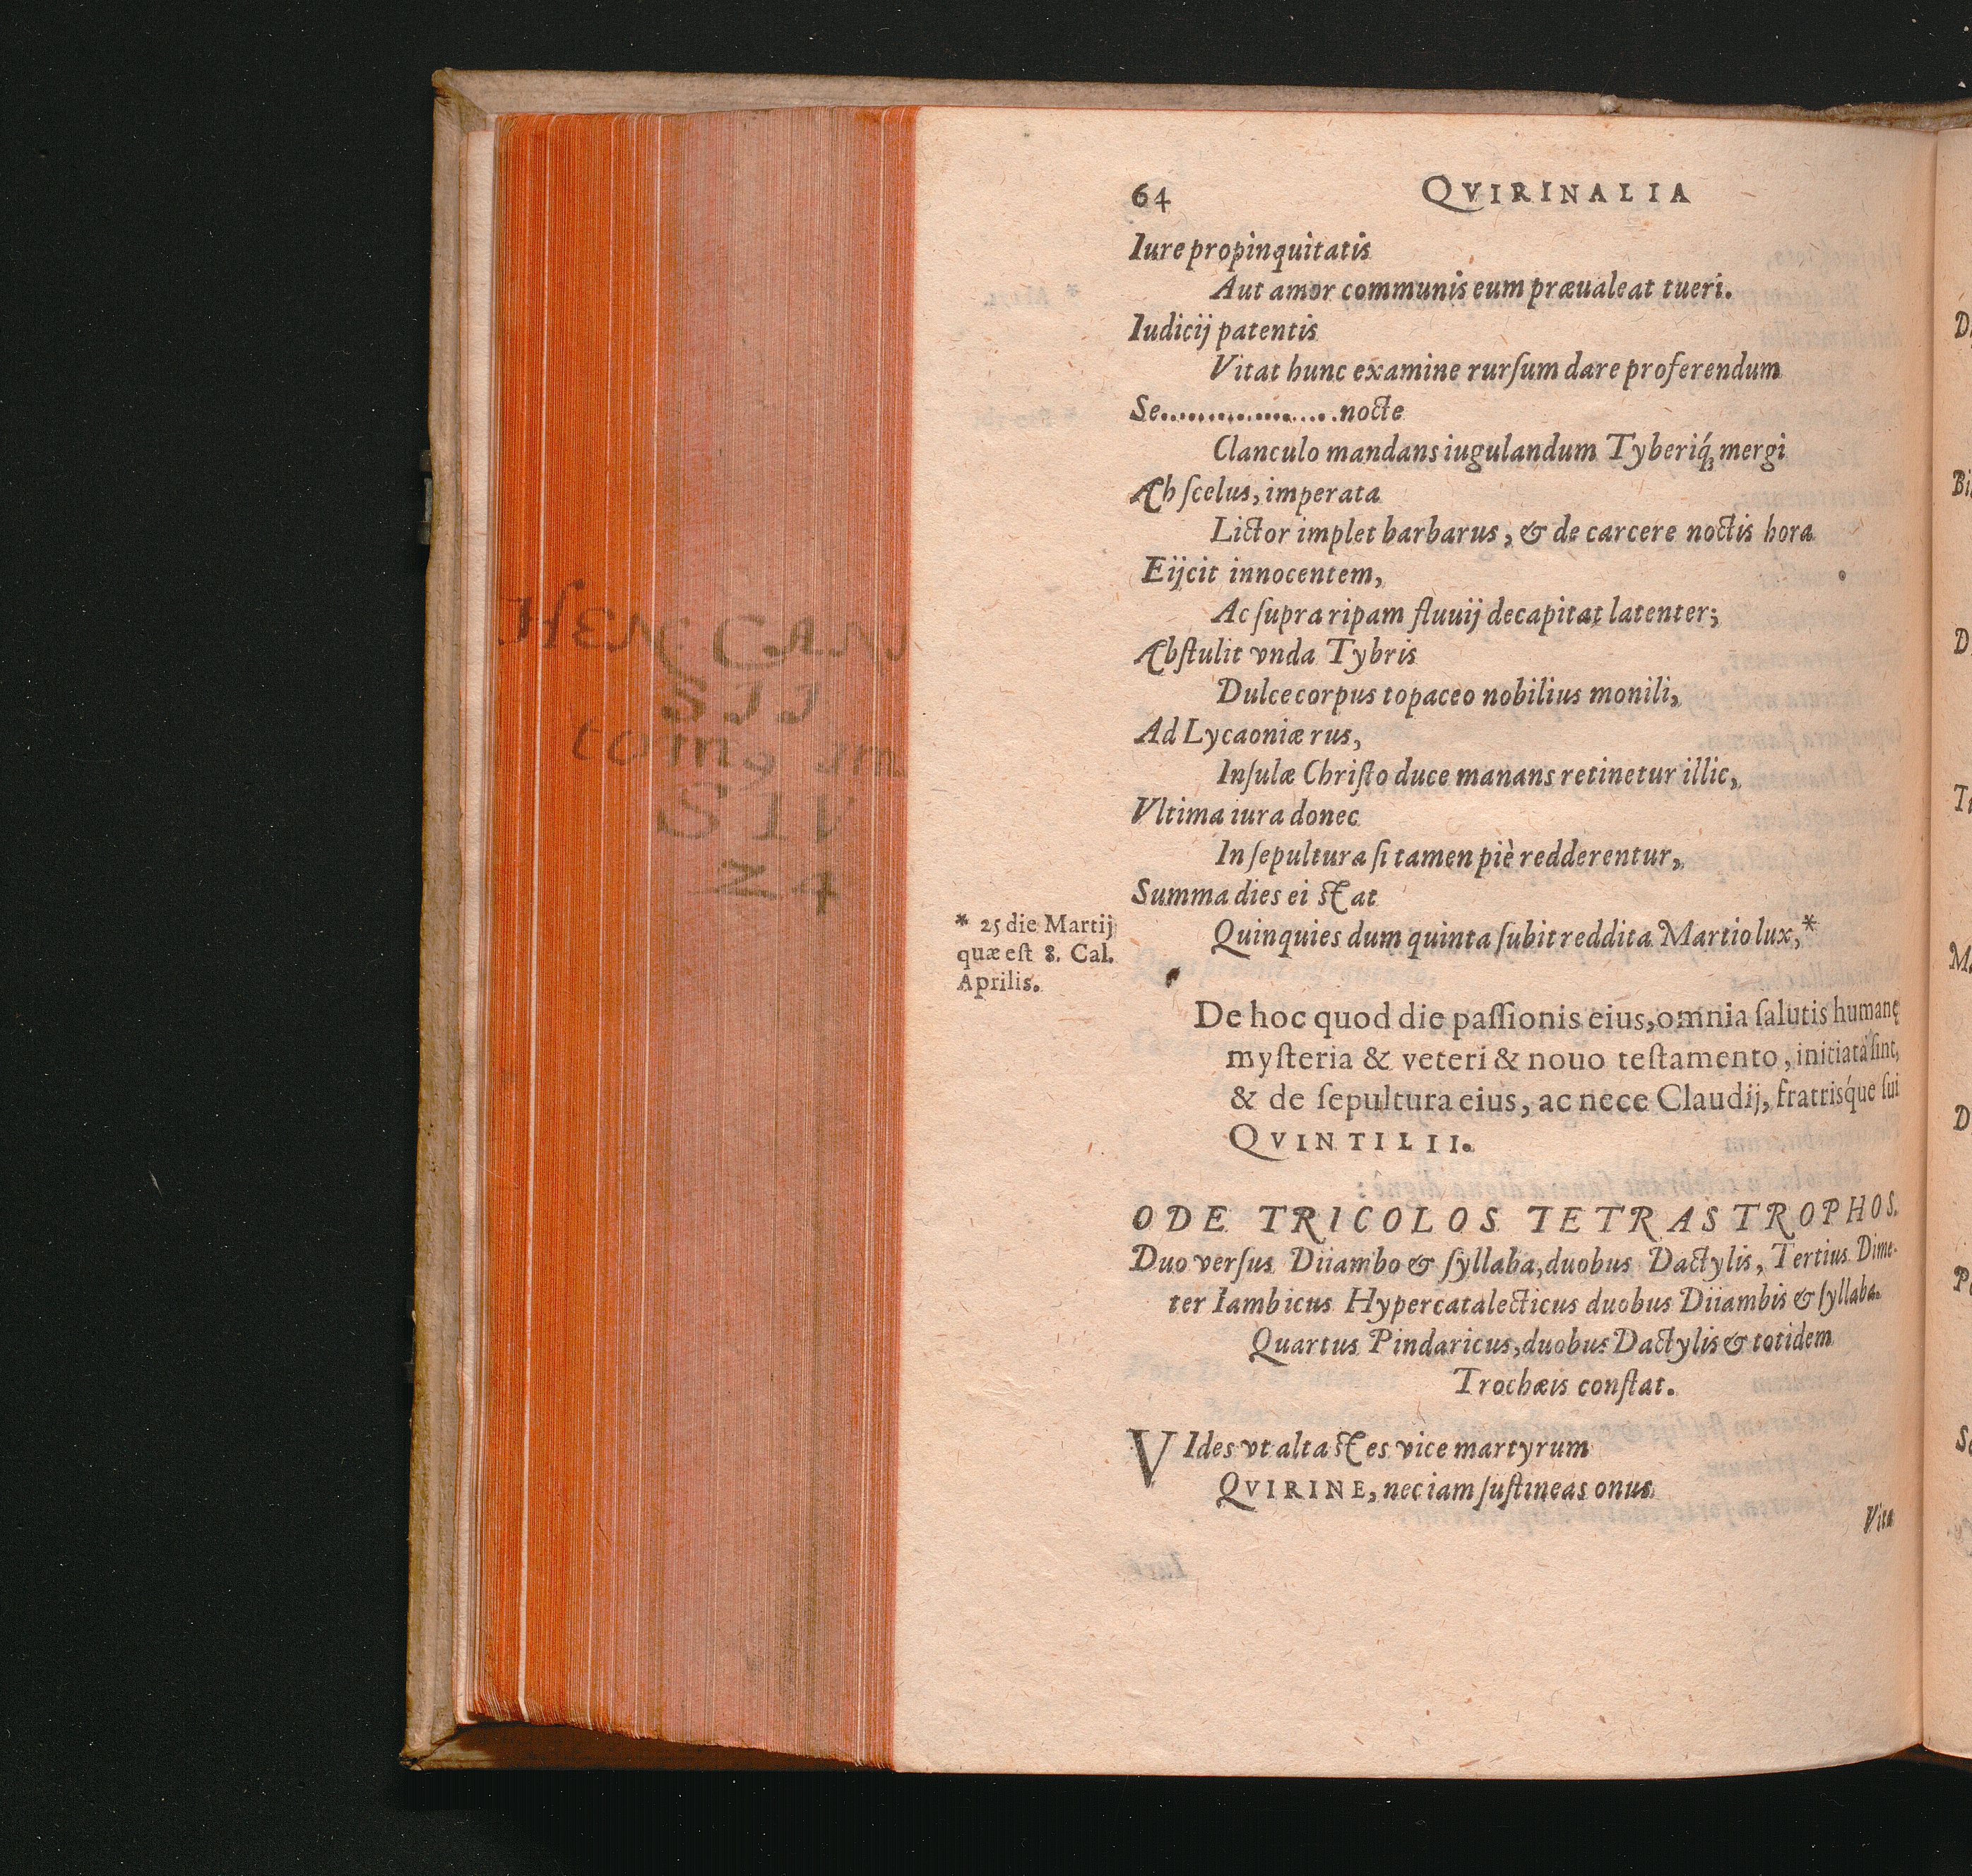 64 QVIRINALIA
Iure propinquitatis
Aut amor communis eum præualeat tueri.
Iudicij patentis
Vitat hunc examine rurſum dare proferendum
Se....................nocte
Clanculo mandans iugulandum Tyberiq́; mergi
Ah ſcelus, imperata
Lictor implet barbarus, & de carcere noctis hora
Eijcit innocentem,
Ac ſupra ripam fluuij decapitat latenter;
Abſtulit vnda Tybris
Dulce corpus topaceo nobilius monili,
Ad Lycaoniæ rus,
Inſulæ Chriſto duce manans retinetur illic,
Vltima iura donec
In ſepultura ſi tamen piè redderentur,
Summa dies ei ſtat
Quinquies dum quinta ſubit reddita Martio lux,*
* 25 die Martij
quæ eſt 8. Cal.
Aprilis.
De hoc quod die paſſionis eius, omnia ſalutis humanę
myſteria & veteri & nouo teſtamento, initiata ſint,
& de ſepultura eius, ac nece Claudij, fratrisq́ue ſui
QVINTILII.
ODE TRICOLOS TETRASTROPHOS.
Duo verſus Diiambo & ſyllaba, duobus Dactylis, Tertius Dime-
ter Iambicus Hypercatalecticus duobus Diiambis & ſyllaba.
Quartus Pindaricus, duobus Dactylis & totidem
Trochæis conſtat.
VIdes vt alta ſtes vice martyrum
QVIRINE, nec iam ſuſtineas onus
Vita